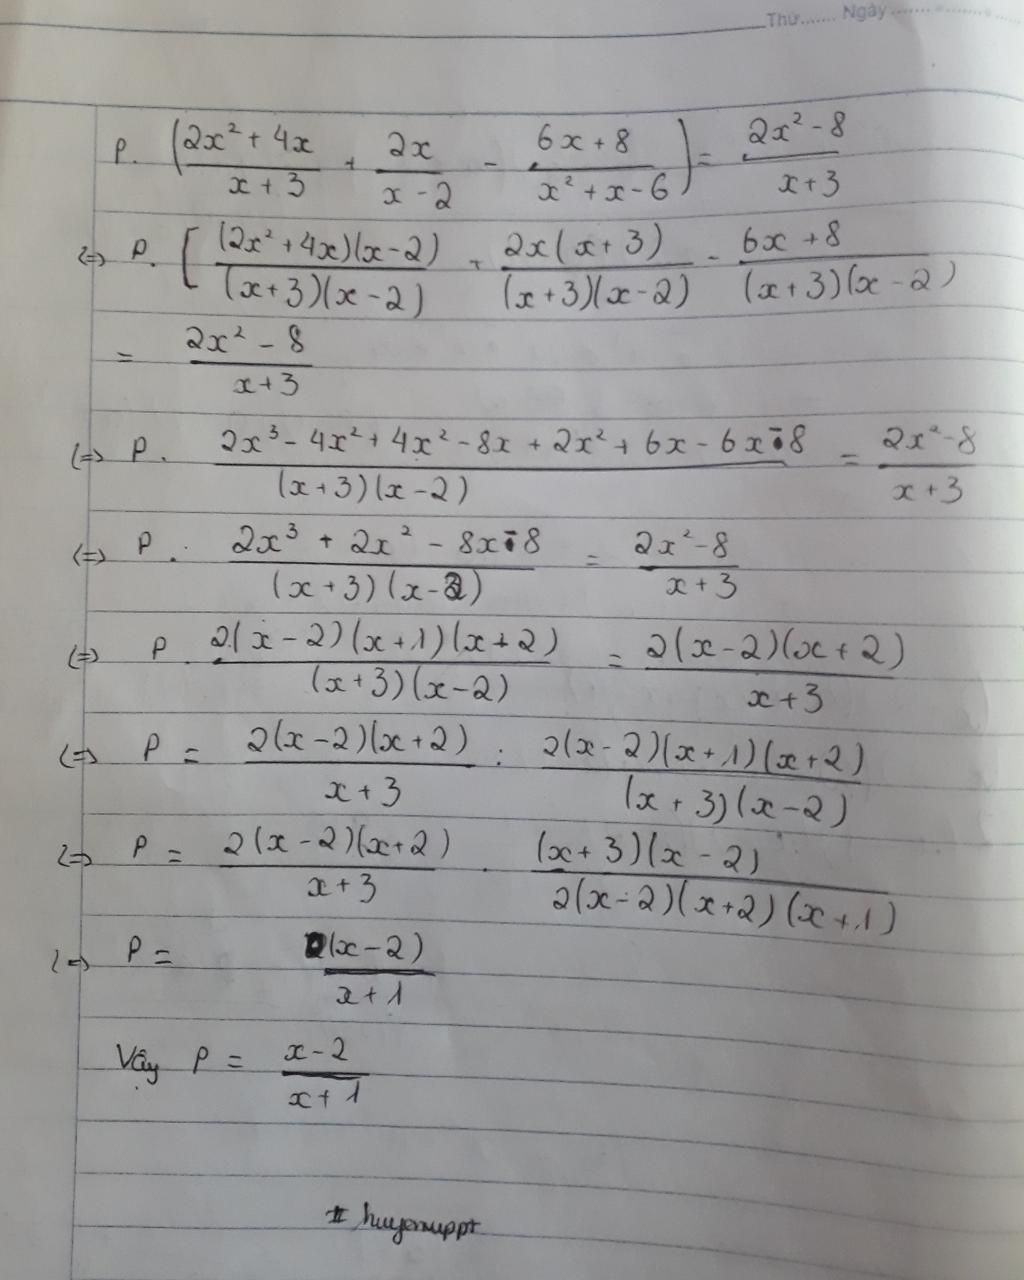 Thứ....... Ngày ...............
P. ((2x² + 4x)/(x + 3) + 2x/(x - 2) - (6x + 8)/(x² + x - 6)) = (2x² - 8)/(x + 3)
<=> P. [((2x² + 4x)(x - 2))/((x + 3)(x - 2)) + (2x(x + 3))/((x + 3)(x - 2)) - (6x + 8)/((x + 3)(x - 2))
= (2x² - 8)/(x + 3)
<=> P. (2x³ - 4x² + 4x² - 8x + 2x² + 6x - 6x - 8)/((x + 3)(x - 2)) = (2x² - 8)/(x + 3)
<=> P. (2x³ + 2x² - 8x - 8)/((x + 3)(x - 2)) = (2x² - 8)/(x + 3)
<=> P. (2.(x - 2)(x + 1)(x + 2))/((x + 3)(x - 2)) = (2(x - 2)(x + 2))/(x + 3)
<=> P = (2(x - 2)(x + 2))/(x + 3) : (2(x - 2)(x + 1)(x + 2))/((x + 3)(x - 2))
<=> P = (2(x - 2)(x + 2))/(x + 3) . ((x + 3)(x - 2))/(2(x - 2)(x + 2)(x + 1))
<=> P = (x - 2)/(x + 1)
Vậy P = (x - 2)/(x + 1)
# huyenuppt